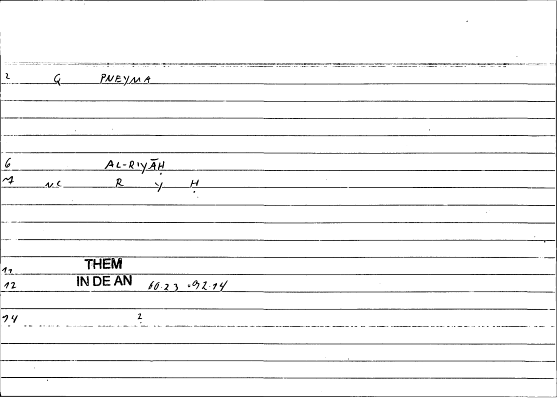 2 G PNEYMA
6 AL-RIYĀḤ
7 NC R Y Ḥ
11 THEM
12 IN DE AN 60.23 .92.14
14 2